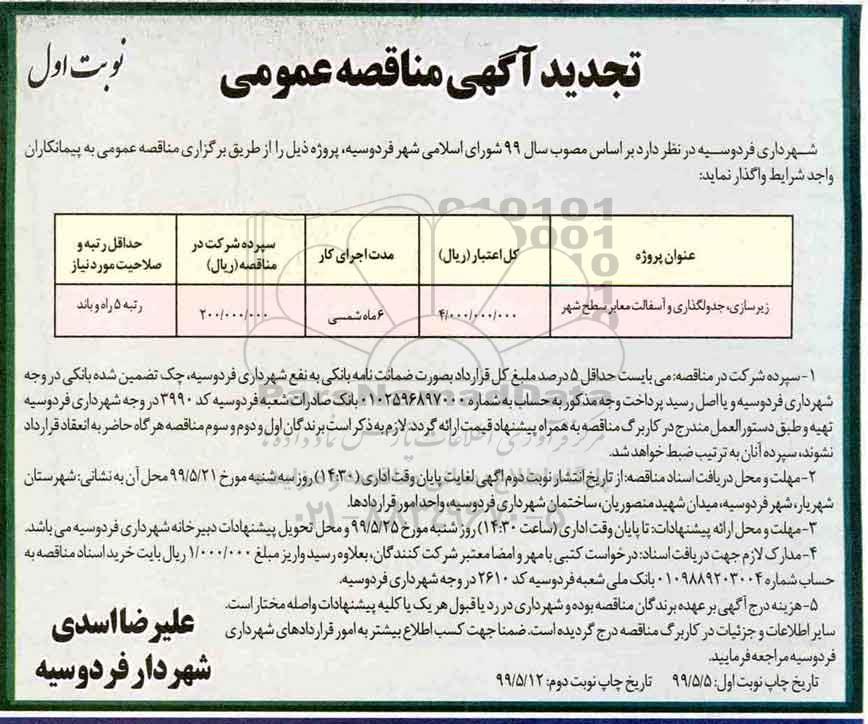 تجدید آگهی مناقصه عمومی
نوبت اول
شهرداری فردوسیه در نظر دارد بر اساس مصوب سال ۹۹ شورای اسلامی شهر فردوسیه، پروژه ذیل را از طریق برگزاری مناقصه عمومی به پیمانکاران
واجد شرایط واگذار نماید:
عنوان پروژه	کل اعتبار (ریال)	مدت اجرای کار	سپرده شرکت در مناقصه (ریال)	حداقل رتبه و صلاحیت مورد نیاز
زیرسازی، جدولگذاری و آسفالت معابر سطح شهر	۴/۰۰۰/۰۰۰/۰۰۰	۶ ماه شمسی	۲۰۰/۰۰۰/۰۰۰	رتبه ۵ راه و باند
۱- سپرده شرکت در مناقصه: می بایست حداقل ۵ درصد مبلغ کل قرارداد بصورت ضمانت نامه بانکی به نفع شهرداری فردوسیه، چک تضمین شده بانکی در وجه
شهرداری فردوسیه و یا اصل رسید پرداخت وجه مذکور به حساب به شماره ۰۱۰۲۵۹۶۸۹۷۰۰۰ بانک صادرات شعبه فردوسیه کد ۳۹۹۰ در وجه شهرداری فردوسیه
تهیه و طبق دستورالعمل مندرج در کاربرگ مناقصه به همراه پیشنهاد قیمت ارائه گردد. لازم به ذکر است برندگان اول و دوم و سوم مناقصه هر گاه حاضر به انعقاد قرارداد
نشوند، سپرده آنان به ترتیب ضبط خواهد شد.
۲- مهلت و محل دریافت اسناد مناقصه: از تاریخ انتشار نوبت دوم اگهی لغایت پایان وقت اداری (۱۴:۳۰) روز سه شنبه مورخ ۹۹/۵/۲۱ محل آن به نشانی: شهرستان
شهریار، شهر فردوسیه، میدان شهید منصوریان، ساختمان شهرداری فردوسیه، واحد امور قراردادها.
۳- مهلت و محل ارائه پیشنهادات: تا پایان وقت اداری (ساعت ۱۴:۳۰) روز شنبه مورخ ۹۹/۵/۲۵ و محل تحویل پیشنهادات دبیرخانه شهرداری فردوسیه می باشد.
۴- مدارک لازم جهت دریافت اسناد: درخواست کتبی با مهر و امضا معتبر شرکت کنندگان، بعلاوه رسید واریز مبلغ ۱/۰۰۰/۰۰۰ ریال بابت خرید اسناد مناقصه به
حساب شماره ۰۱۰۹۸۸۹۲۰۳۰۰۴ بانک ملی شعبه فردوسیه کد ۲۶۱۰ در وجه شهرداری فردوسیه.
۵- هزینه درج آگهی بر عهده برندگان مناقصه بوده و شهرداری در رد یا قبول هر یک یا کلیه پیشنهادات واصله مختار است.
سایر اطلاعات و جزئیات در کاربرگ مناقصه درج گردیده است. ضمنا جهت کسب اطلاع بیشتر به امور قراردادهای شهرداری
فردوسیه مراجعه فرمایید.
تاریخ چاپ نوبت اول: ۹۹/۵/۵	تاریخ چاپ نوبت دوم: ۹۹/۵/۱۲
علیرضا اسدی
شهردار فردوسیه